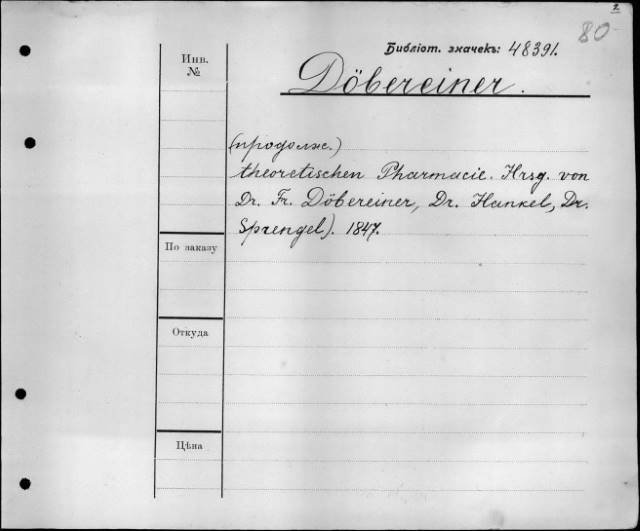 2
80
Библіот. значекъ: 48391.
Инв. №
Döbereiner.
(продолж.)
theoretischen Pharmacie. Hrsg. von
Dr. Fr. Döbereiner, Dr. Hankel, Dr.
Sprengel). 1847.
По заказу
Откуда
Цѣна